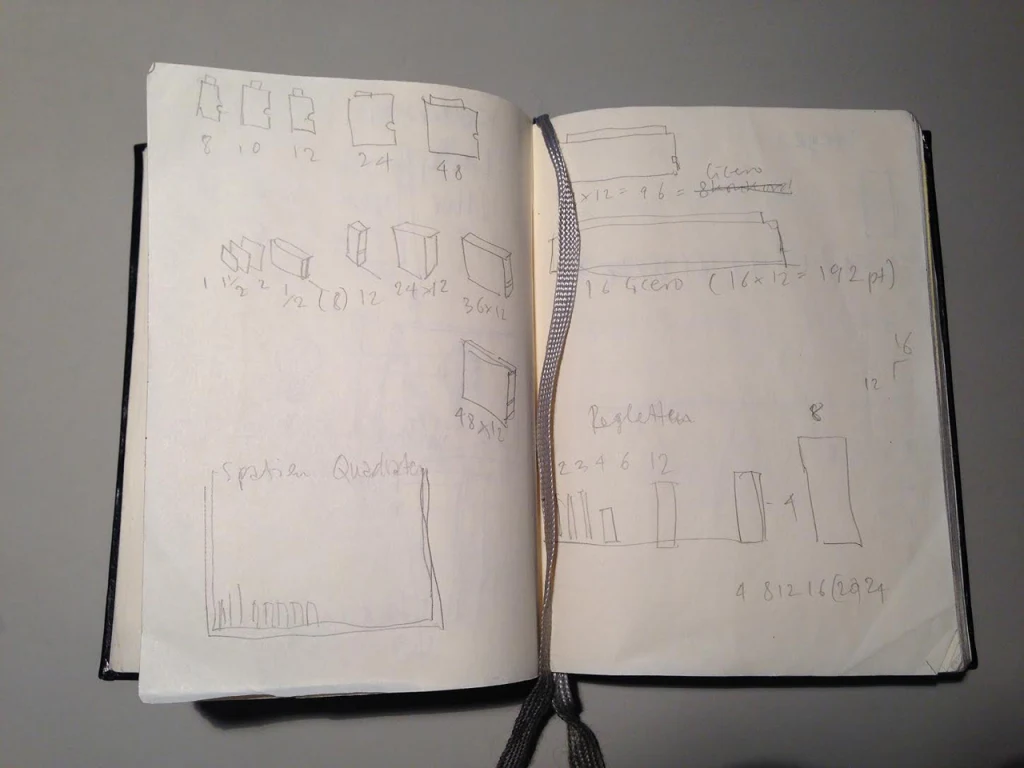 8 10 12 24 48
1 1½ 2 ½ (8) 12 24×12 36×12
48×12
Spatien Quadraten
Cicero
×12 = 96 =
16 Cicero (16×12 = 192 pt)
16
12
Regletten
8
2 3 4 6 12
4
4 8 12 16 (20) 24